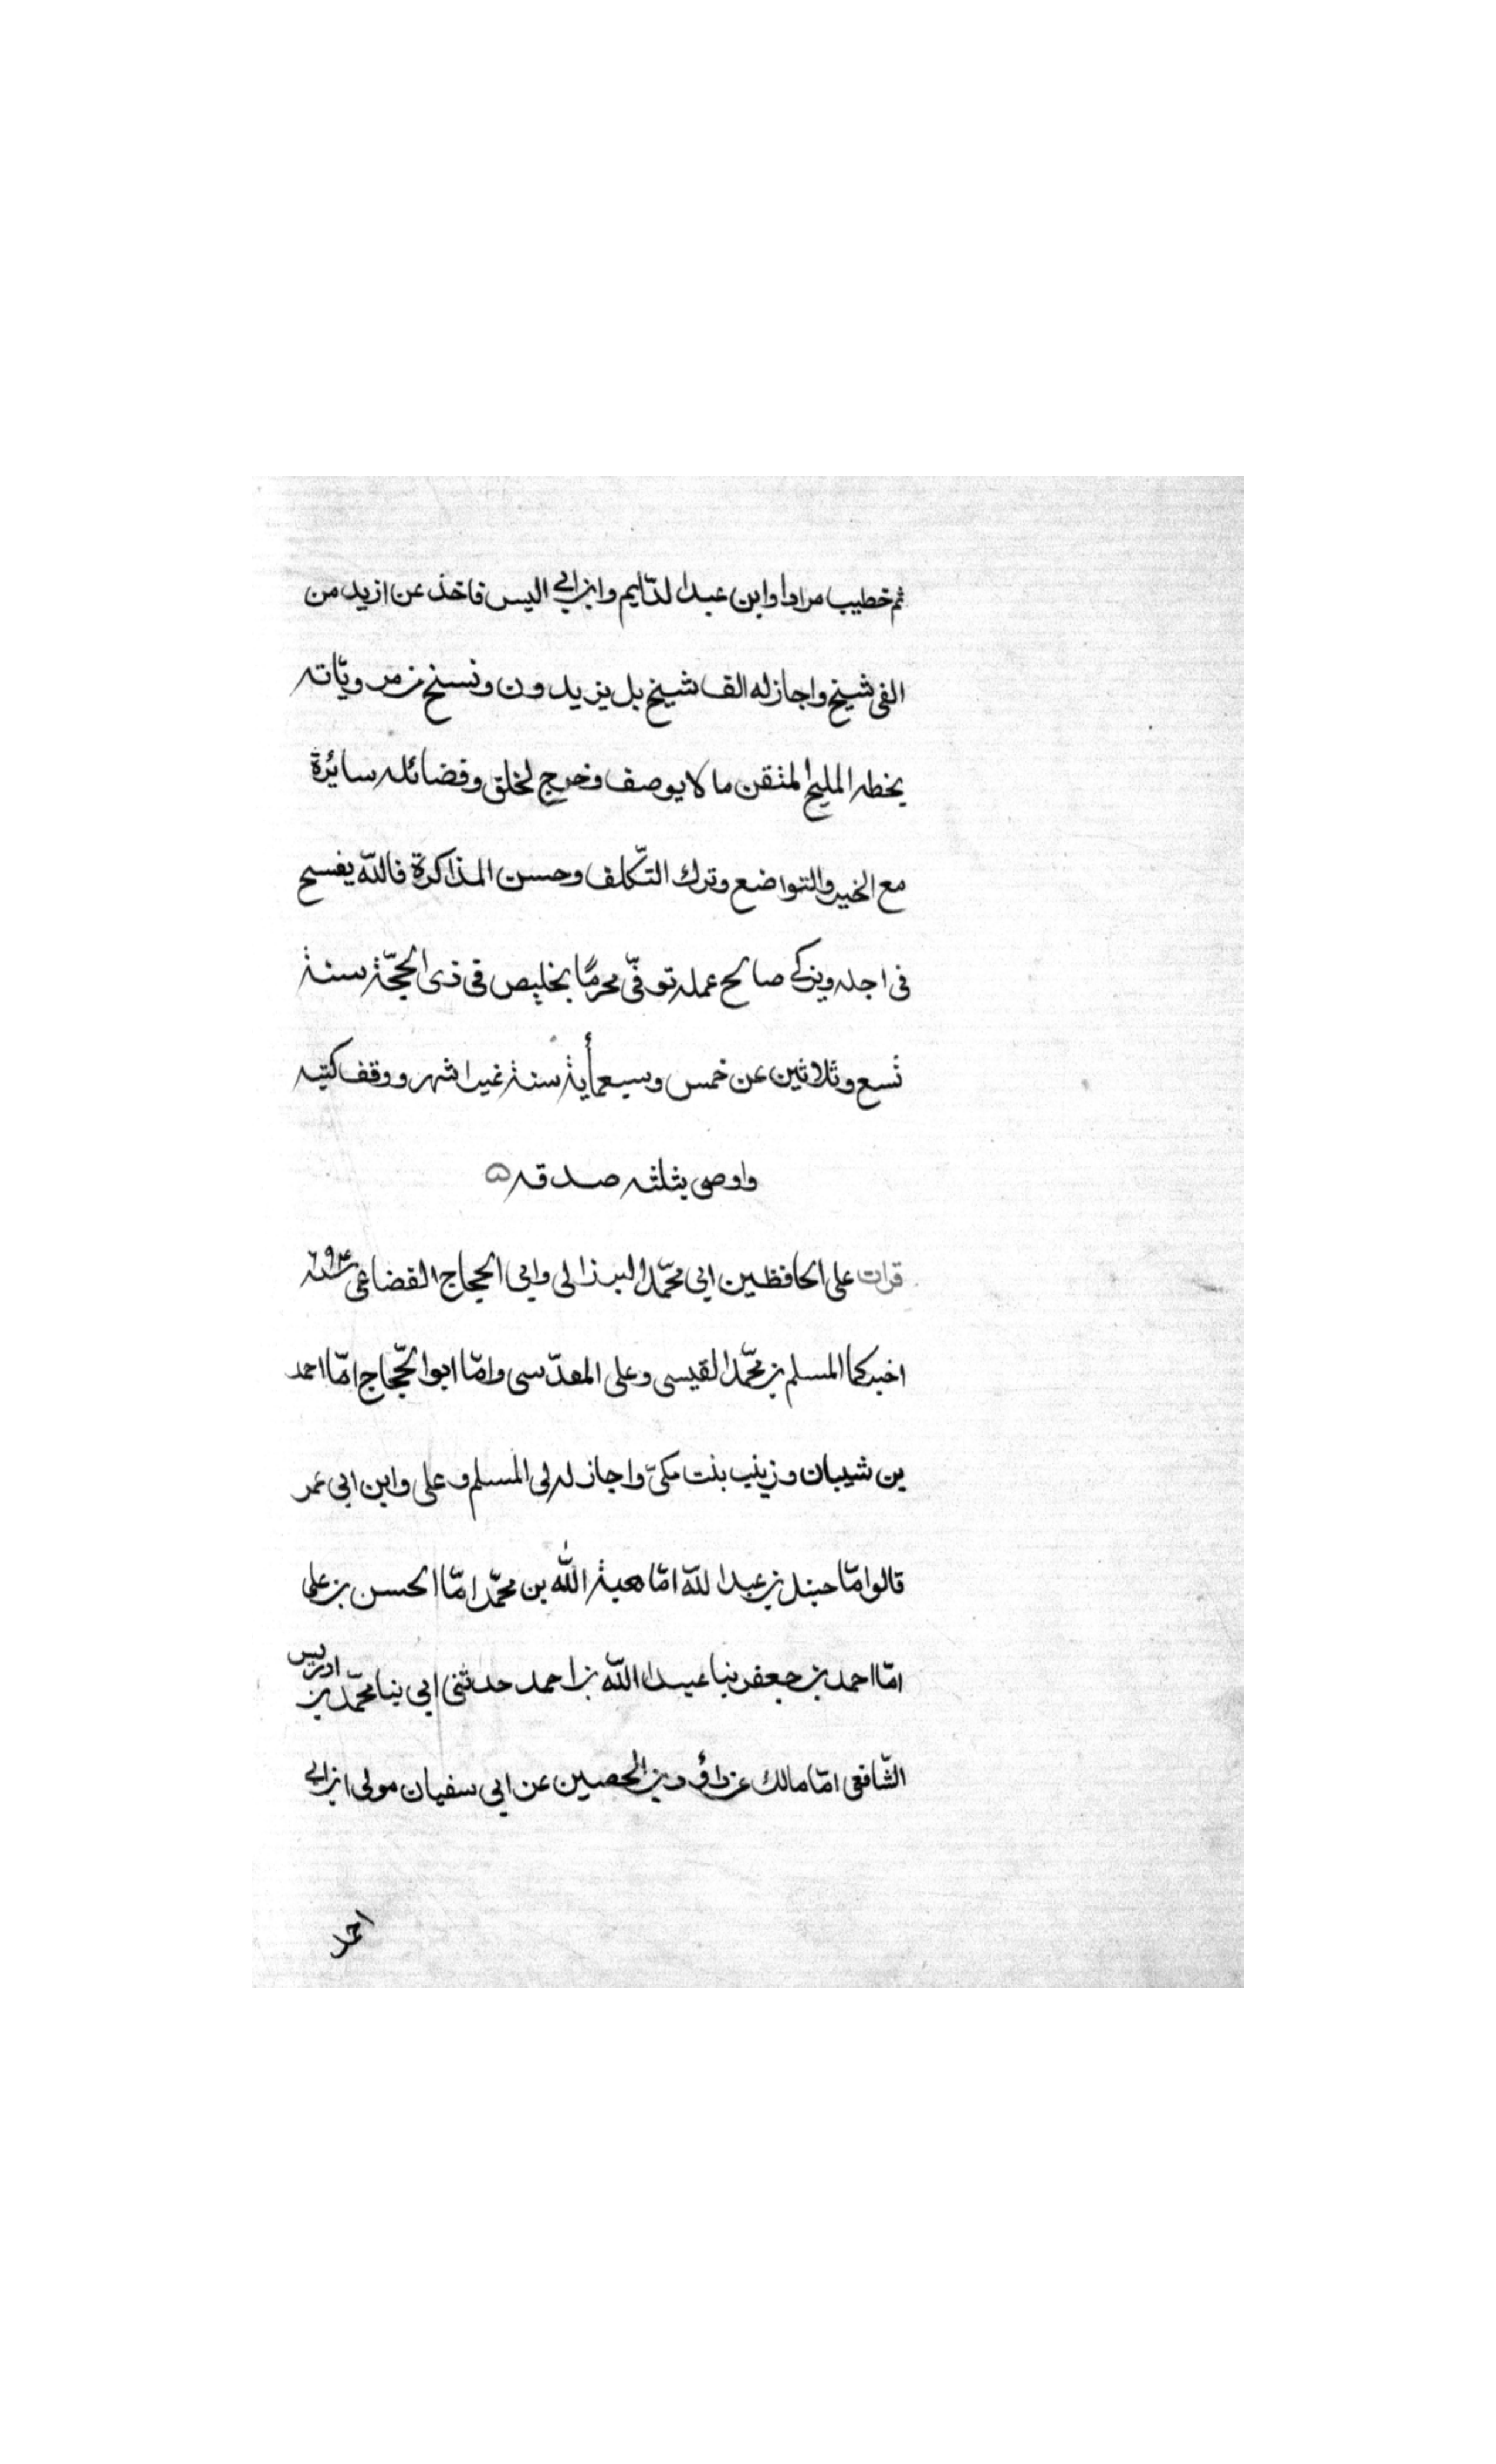 ثم خطيب مرادا وابن عبد الدّايم وابن ابي اليس فاخذ عن ازيد من
الفى شيخ واجاز له الف شيخ بل يزيدون ونسخ من مروياّته
بخطه المليح المتقن ما لا يوصف وخرج لخلق وفضائله سائرة
مع الخير والتواضع وترك التّكلف وحسن المذاكرة فالله يفسح
فى اجله ويزكى صالح عمله توفّى محرمًا بخليص فى ذى الحجّة سنة
تسع وثلاثين عن خمس وسبعمأية سنة غير اشهر ووقف كتبه
واوصى بثلثه صدقه
قرات على الحافظين ابى محمّد البرزالى وابى الحجاج القضاعى سنة ٦٩٤
اخبركما المسلم بن محمّد القيسى وعلى المقدّسى وامّا ابو الحّجاج امّا احمد
بن شيبان وزينب بنت مكىّ واجاز له لى المسلم وعلى وابن ابى عمر
قالوا امّا حنبل بن عبد اللّه امّا هبة اللّه بن محمّد امّا الحسن بن على
امّا احمد بن جعفر بنا عبد اللّه بن احمد حدثنى ابى بنا محمّد بن ادريس
الشّافعى امّا مالك عن داؤد بن الحصين عن ابى سفيان مولى ابن ابى
احمد